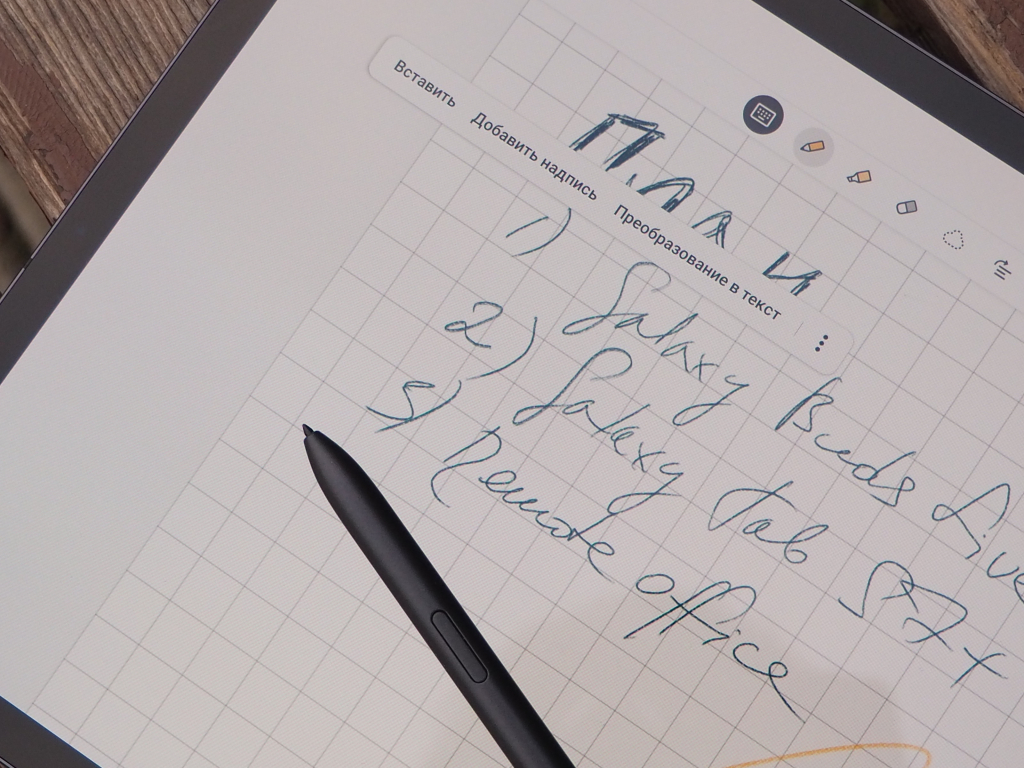 Вставить Добавить надпись Преобразование в текст
1) Galaxy Buds Live
2) Galaxy Tab S7+
3) Remote office